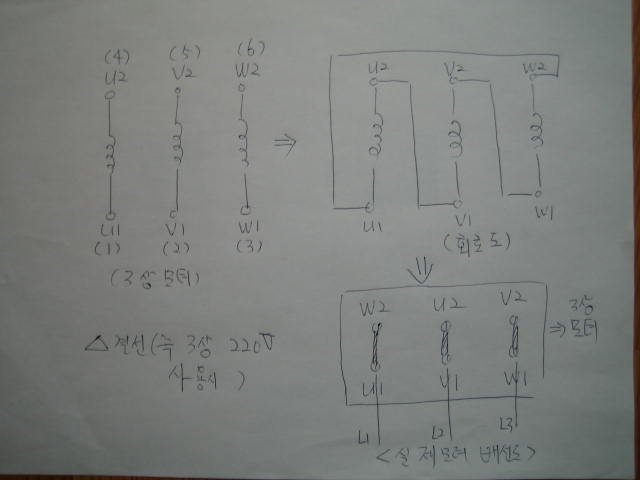 (4) (5) (6)
U2 V2 W2
U1 V1 W1
(1) (2) (3)
(3상 모터)
△ 결선(즉 3상 220V
사용시 )
U2 V2 W2
U1 V1 W1
(회로도)
W2 U2 V2
U1 V1 W1
L1 L2 L3
3상
모터
<실제모터 배선도>